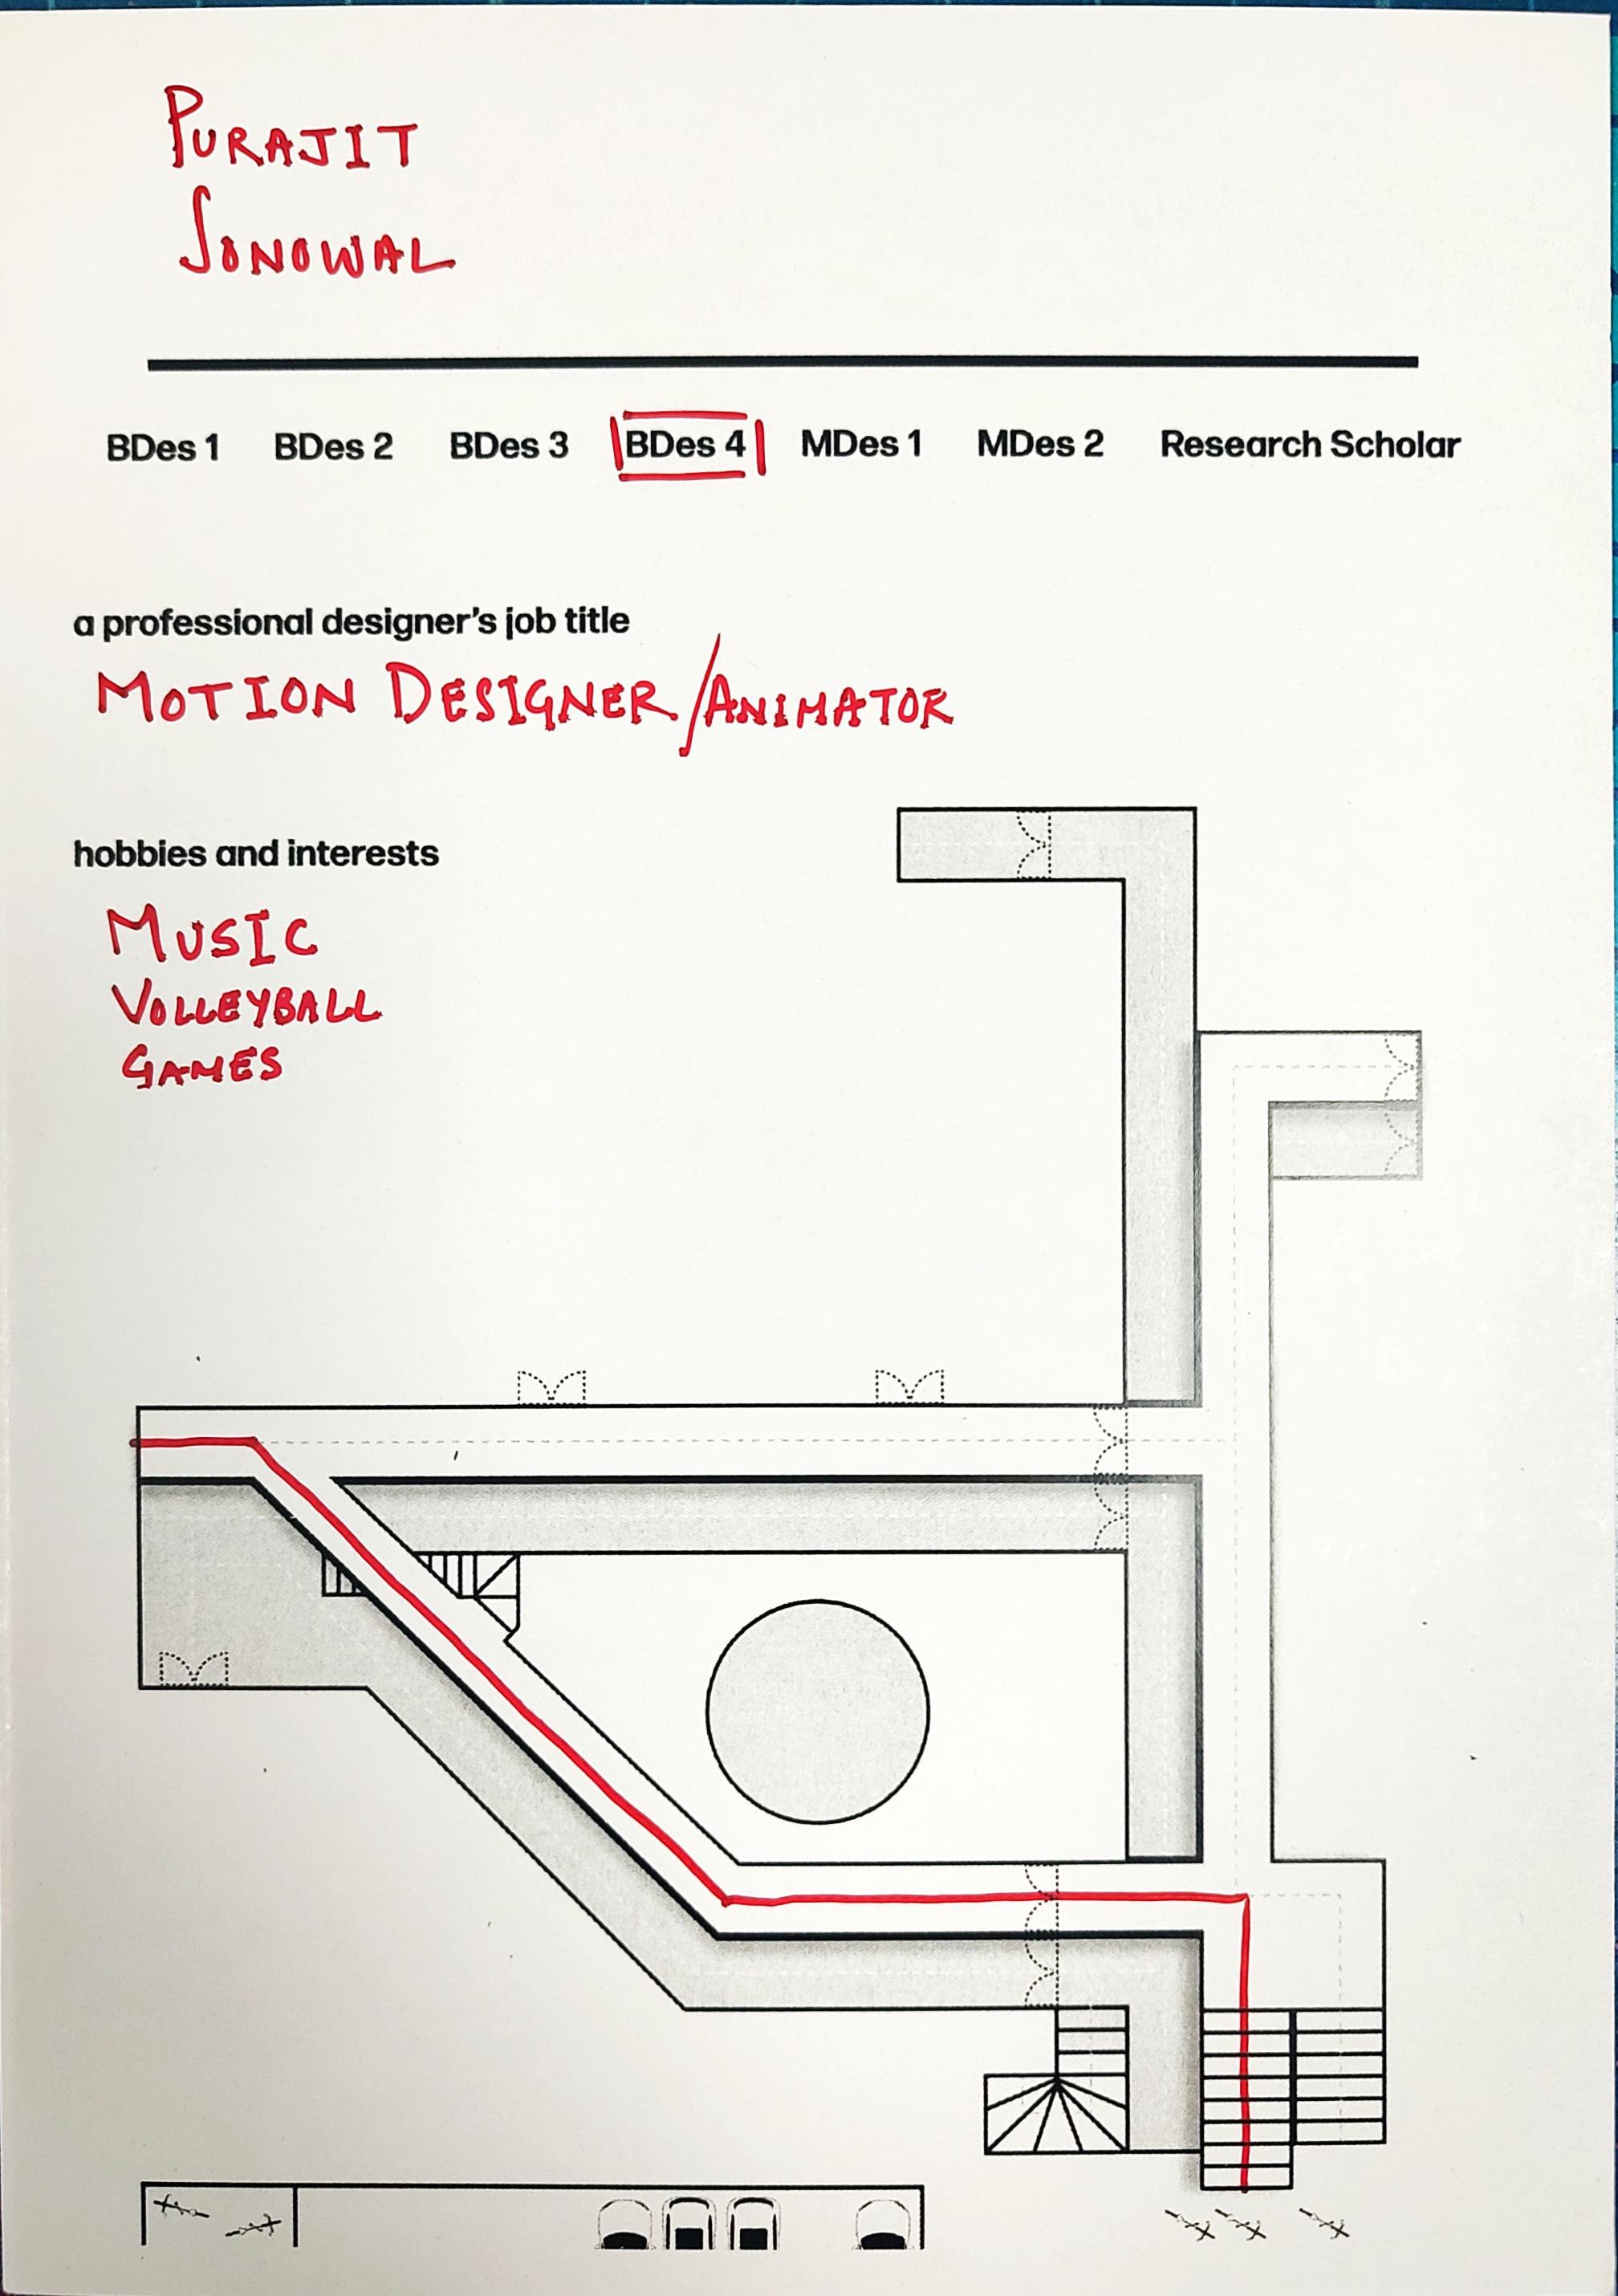 PURAJIT
SONOWAL
BDes 1 BDes 2 BDes 3 BDes 4 MDes 1 MDes 2 Research Scholar
a professional designer's job title
MOTION DESIGNER/ANIMATOR
hobbies and interests
MUSIC
VOLLEYBALL
GAMES